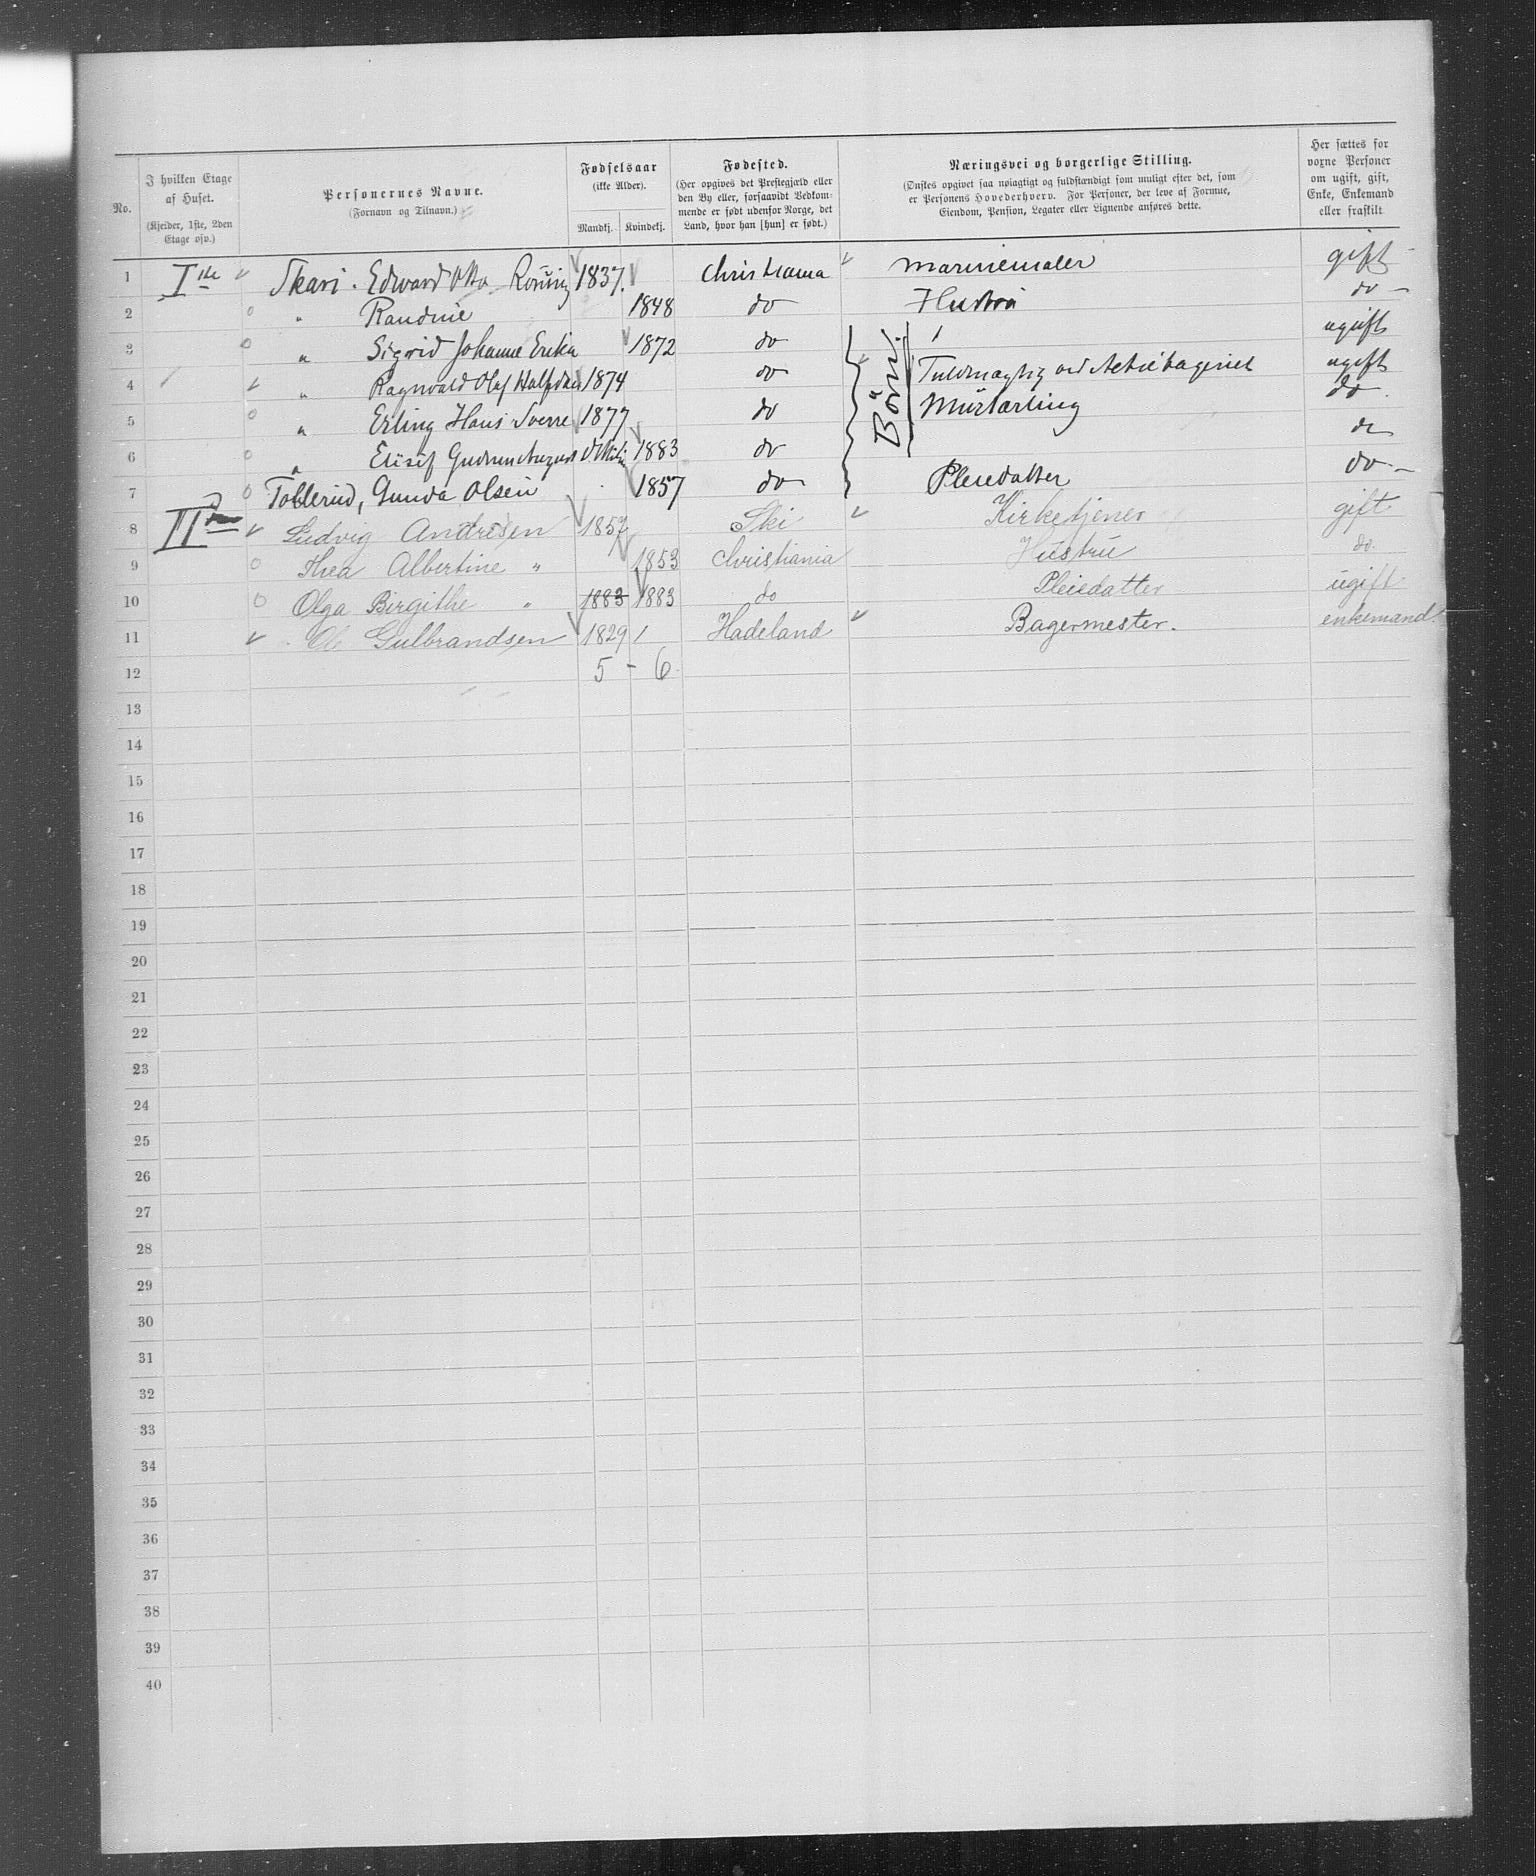 No.
I hvilken Etage af Huset.
(Kjelder, 1ste, 2den Etage osv.)
Personernes Navne.
(Fornavn og Tilnavn.)
Fødselsaar
(ikke Alder).
Mandkj. Kvindekj.
Fødested.
(Her opgives det Prestegjæld eller den By eller, forsaavidt Vedkommende er født udenfor Norge, det Land, hvor han [hun] er født.)
Næringsvei og borgerlige Stilling.
(Ønskes opgivet saa nøiagtigt og fuldstændigt som muligt efter det, som er Personens Hovederhverv. For Personer, der leve af Formue, Eiendom, Pension, Legater eller Lignende anføres dette.
Her sættes for voxne Personer om ugift, gift, Enke, Enkemand eller fraskilt
1 Iste Skari. Edward Otto 1837. Christiania Marinemaler gift
2 " Randine 1848 do Hustru do
3 " Sigrid Johanne Erika 1872 do Börn. ugift
4 " Ragnvald Olaf Halfdan 1874 do ugift
5 " Erling Hans Sverre 1877 do Murlærling do
6 " Elisif Gudrun 1883 do do
7 Tollerud, Gunda Olsen 1857 do Pleiedatter do
8 II Ludvig Andresen 1857 Ski Kirketjener gift
9 Thea Albertine " 1853 Christiania Hustru do
10 Olga Birgithe " 1883 1883 do Pleiedatter ugift
11 Gulbrandsen 1829 Hadeland Bagermester. enkemand
12 5 - 6
13
14
15
16
17
18
19
20
21
22
23
24
25
26
27
28
29
30
31
32
33
34
35
36
37
38
39
40